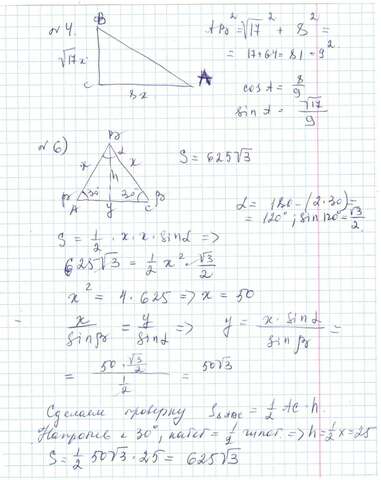 №4.
B
√17x
C
8x
A
AB² = √17² + 8² =
= 17+64 = 81 = 9²
cos A = 8/9
sin A = √17/9
№6)
B
α
x
x
h
β
30°
30°
β
A
y
C
S = 625√3
α = 180 - (2·30) =
= 120°; sin 120° = √3/2
S = 1/2 · x · x · sin α =>
625√3 = 1/2 x² · √3/2
x² = 4·625 => x = 50
x/sin β = y/sin α => y = x · sin α/sin β =
= (50 · √3/2)/(1/2) = 50√3
Сделаем проверку S△ABC = 1/2 AC · h.
Напротив ∠ 30°, катет = 1/2 гипот. => h = 1/2 x = 25
S = 1/2 50√3 · 25 = 625√3